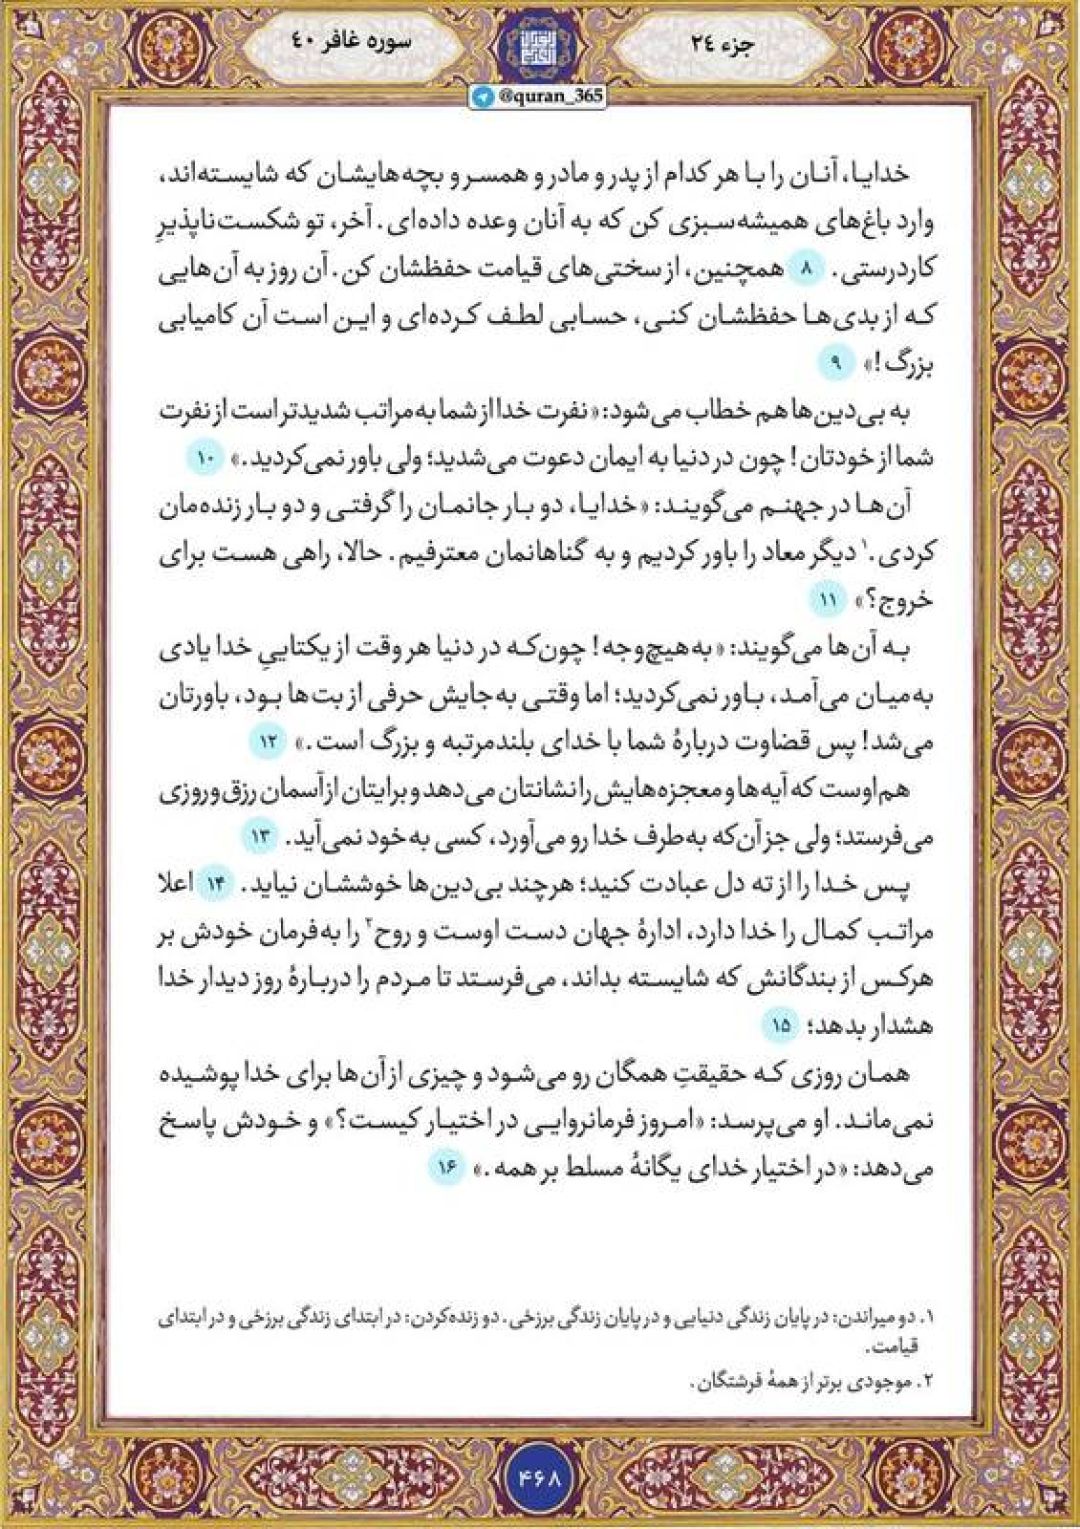 جزء ٢٤
سوره غافر ٤٠
@quran_365
خدایا، آنان را با هر کدام از پدر و مادر و همسر و بچه‌هایشان که شایسته‌اند،
وارد باغ‌های همیشه‌سبزی کن که به آنان وعده داده‌ای. آخر، تو شکست‌ناپذیرِ
کاردرستی. ۸ همچنین، از سختی‌های قیامت حفظشان کن. آن روز به آن‌هایی
که از بدی‌ها حفظشان کنی، حسابی لطف کرده‌ای و این است آن کامیابی
بزرگ!» ۹
به بی‌دین‌ها هم خطاب می‌شود: «نفرت خدا از شما به‌مراتب شدیدتر است از نفرت
شما از خودتان! چون در دنیا به ایمان دعوت می‌شدید؛ ولی باور نمی‌کردید.» ۱۰
آن‌ها در جهنم می‌گویند: «خدایا، دو بار جانمان را گرفتی و دو بار زنده‌مان
کردی.۱ دیگر معاد را باور کردیم و به گناهانمان معترفیم. حالا، راهی هست برای
خروج؟» ۱۱
به آن‌ها می‌گویند: «به‌هیچ‌وجه! چون‌که در دنیا هر وقت از یکتاییِ خدا یادی
به‌میان می‌آمد، باور نمی‌کردید؛ اما وقتی به‌جایش حرفی از بت‌ها بود، باورتان
می‌شد! پس قضاوت دربارهٔ شما با خدای بلندمرتبه و بزرگ است.» ۱۲
هم‌اوست که آیه‌ها و معجزه‌هایش را نشانتان می‌دهد و برایتان از آسمان رزق‌وروزی
می‌فرستد؛ ولی جز آن‌که به‌طرف خدا رو می‌آورد، کسی به خود نمی‌آید. ۱۳
پس خدا را از ته دل عبادت کنید؛ هرچند بی‌دین‌ها خوششان نیاید. ۱۴ اعلا
مراتب کمال را خدا دارد، ادارهٔ جهان دست اوست و روح۲ را به‌فرمان خودش بر
هرکس از بندگانش که شایسته بداند، می‌فرستد تا مردم را دربارهٔ روز دیدار خدا
هشدار بدهد؛ ۱۵
همان روزی که حقیقتِ همگان رو می‌شود و چیزی از آن‌ها برای خدا پوشیده
نمی‌ماند. او می‌پرسد: «امروز فرمانروایی در اختیار کیست؟» و خودش پاسخ
می‌دهد: «در اختیار خدای یگانهٔ مسلط بر همه.» ۱۶
۱. دو میراندن: در پایان زندگی دنیایی و در پایان زندگی برزخی. دو زنده‌کردن: در ابتدای زندگی برزخی و در ابتدای
قیامت.
۲. موجودی برتر از همهٔ فرشتگان.
۴۶۸